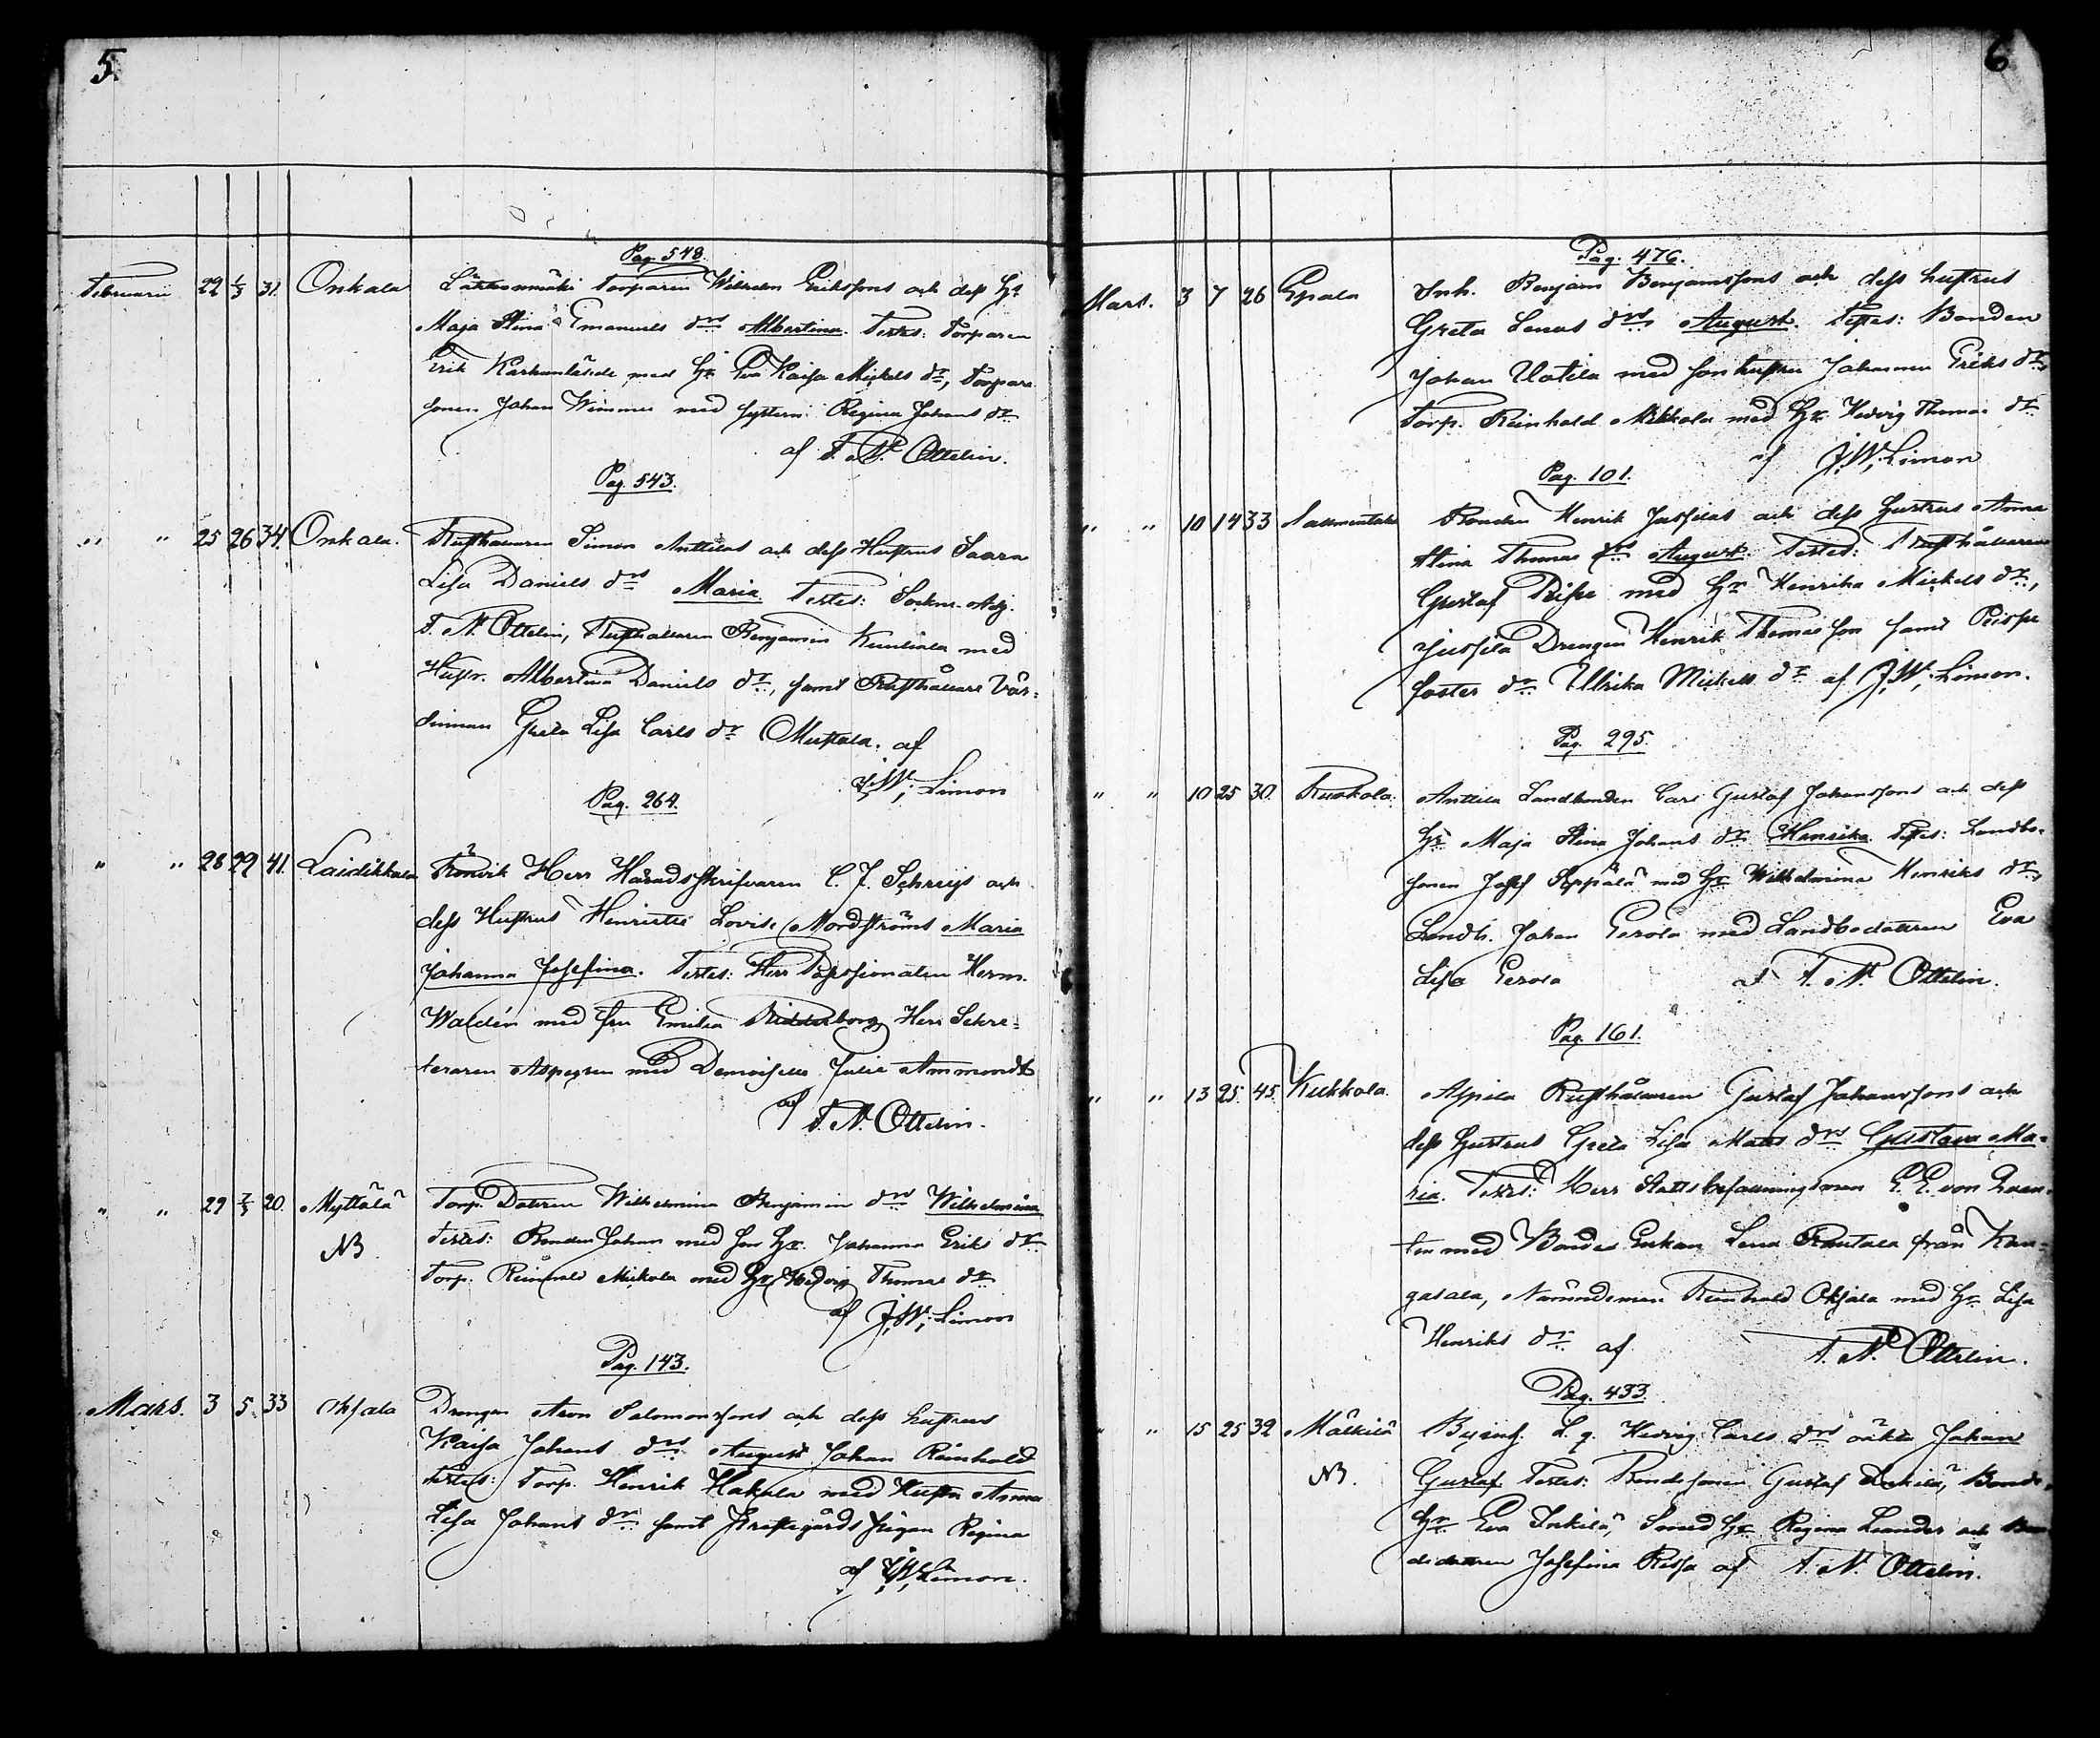 5
Pag. 548.
Februarii 22 1/3 31. Onkala Torparen Wilhelm Erikssons och dess H:s
Maja Stina Emanuels d:rs Albertina. Testes: Torparen
Erik med H:r Eva Kaisa Mickels d:r, Torpare
sonen Johan Wimmer med systern Regina Johans d:r
af T. N. Ottelin.
Pag. 543.
" " 25 26 34. Onkala. Rusthållaren Simon Anttilas och dess Hustrus Saara
Lisa Daniels d:rs Maria. Testes: Sockne-Adj.
T. N. Ottelin, Rusthållaren Benjamin med
Hustr. Albertina Daniels d:r, samt Rusthållare Vär-
dinnan Greta Lisa Carls d:r Mustala. af
J. W. Limon
Pag. 264.
" " 28 29 41. Laidikkala Herr Häradsskrifvaren C. J. och
dess Hustrus Henriette Lovise Nordströms Maria
Johanna Josefina. Testes: Herr Herm.
Waldén med fru Emilia Ridderborg Herr Sekre-
teraren Aspegren med Demoiselle Julie Ammondt
af T. N. Ottelin.
" " 29 7/3 20. Myttälä Torp. Dottren Wilhelmina Benjamin d:rs Wilhelmina
NB Testes: Bonden Johan med son H:r. Johanna Eriks d:r
Torp. Reinhold Mickola med H:r Hedvig Thomas d:r
af J. W. Limon
Pag. 143.
Mars. 3 5 33 Oksala Drengen Aron Salomonssons och dess hustrus
Kaisa Johans d:rs August Johan Reinhold
Testes: Torp. Henrik Hakala med Hustru Anna
Lisa Johans d:r samt Prestegårds pigan Regina
af J. W. Limon.
6
Pag. 476.
Mars. 3 7 26 Epaala Inh. Benjam Benjamssons och dess hustrus
Greta Lenas d:rs August. Testes: Bonden
Johan Uotila med son hustru Johanna Eriks d:r,
Torp. Reinhold Mikkola med H:r. Hedvig Thomas d:r
af J. W. Limon
Pag. 101.
" " 10 14 33 Bonden Henrik Jussilas och dess Hustrus Anna
Stina Thomas d:rs August. Testes: Rusthållaren
Gustaf med H:r Henrika Mickels d:r,
Jussila Drengen Henrik Thomasson samt
foster d:r Ulrika Mickels d:r af J. W. Limon.
Pag. 295.
" " 10 25 30. Anttila Landbonden Carl Gustaf Johanssons och dess
H:s Maja Stina Johans d:rs Henrika. Testes: Landbo-
sonen Josef Seppälä med H:r Wilhelmina Henriks d:r,
Landb. Johan Gerola med Landbodottren Eva
Lisa Gerola af T. N. Ottelin.
Pag. 161.
" " 13 25. 45. Kukkola. Rusthållaren Gustaf Johanssons och
dess Hustrus Greta Lisa Mats d:rs Gustava Ma-
ria. Testes: Herr Slottsbefallningsman E. E. von Qvan-
ten med Bonde Enkan Lena Rautala från Kan-
gasala, Nämndeman Reinhold Oksala med H:r. Lisa
Henriks d:r af T. N. Ottelin.
Pag. 433.
" " 15 25 32 Mälkilä Byinh. L. q. Hedvig Carls d:rs oäkta Johan
NB. Gustaf. Testes: Bondesonen Gustaf Inkilä, Bonde
H:r Eva Inkilä, Smed H:r Regina Leander och
Josefina af T. N. Ottelin.